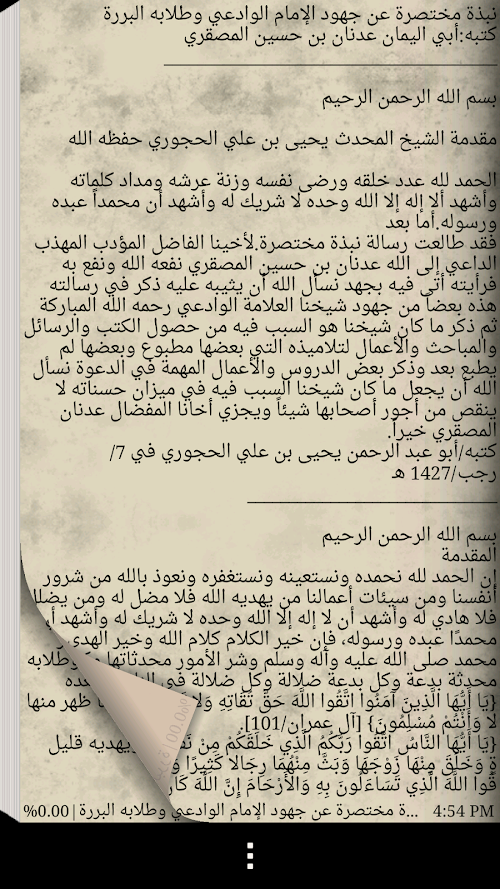 نبذة مختصرة عن جهود الإمام الوادعي وطلابه البررة
كتبه:أبي اليمان عدنان بن حسين المصقري
بسم الله الرحمن الرحيم
مقدمة الشيخ المحدث يحيى بن علي الحجوري حفظه الله
الحمد لله عدد خلقه ورضى نفسه وزنة عرشه ومداد كلماته
وأشهد ألا إله إلا الله وحده لا شريك له وأشهد أن محمداً عبده
ورسوله.أما بعد
فقد طالعت رسالة نبذة مختصرة.لأخينا الفاضل المؤدب المهذب
الداعي إلى الله عدنان بن حسين المصقري نفعه الله ونفع به
فرأيته أتى فيه بجهد نسأل الله أن يثيبه عليه ذكر في رسالته
هذه بعضاً من جهود شيخنا العلامة الوادعي رحمه الله المباركة
ثم ذكر ما كان شيخنا هو السبب فيه من حصول الكتب والرسائل
والمباحث والأعمال لتلاميذه التي بعضها مطبوع وبعضها لم
يطبع بعد وذكر بعض الدروس والأعمال المهمة في الدعوة نسأل
الله أن يجعل ما كان شيخنا السبب فيه في ميزان حسناته لا
ينقص من أجور أصحابها شيئاً ويجزي أخانا المفضال عدنان
المصقري خيراً.
كتبه/أبو عبد الرحمن يحيى بن علي الحجوري في 7/
رجب/1427 هـ
بسم الله الرحمن الرحيم
المقدمة
إن الحمد لله نحمده ونستعينه ونستغفره ونعوذ بالله من شرور
أنفسنا ومن سيئات أعمالنا من يهديه الله فلا مضل له ومن يضلل
فلا هادي له وأشهد أن لا إله إلا الله وحده لا شريك له وأشهد أن
محمدًا عبده ورسوله، فإن خير الكلام كلام الله وخير الهدي
محمد صلى الله عليه وآله وسلم وشر الأمور محدثاتها وطلابه
محدثة بدعة وكل بدعة ضلالة وكل ضلالة في
{يَا أَيُّهَا الَّذِينَ آمَنُوا اتَّقُوا اللَّهَ حَقَّ تُقَاتِهِ وَلَا ظهر منها
لا وَأَنْتُمْ مُسْلِمُونَ} [آل عمران/101].
{يَا أَيُّهَا النَّاسُ اتَّقُوا رَبَّكُمُ الَّذِي خَلَقَكُمْ مِنْ يهديه قليل
ةٍ وَخَلَقَ مِنْهَا زَوْجَهَا وَبَثَّ مِنْهُمَا رِجَالًا كَثِيرًا
قُوا اللَّهَ الَّذِي تَسَاءَلُونَ بِهِ وَالْأَرْحَامَ إِنَّ اللَّهَ كَانَ
4:54 PM ...ة مختصرة عن جهود الإمام الوادعي وطلابه البررة|0.00%